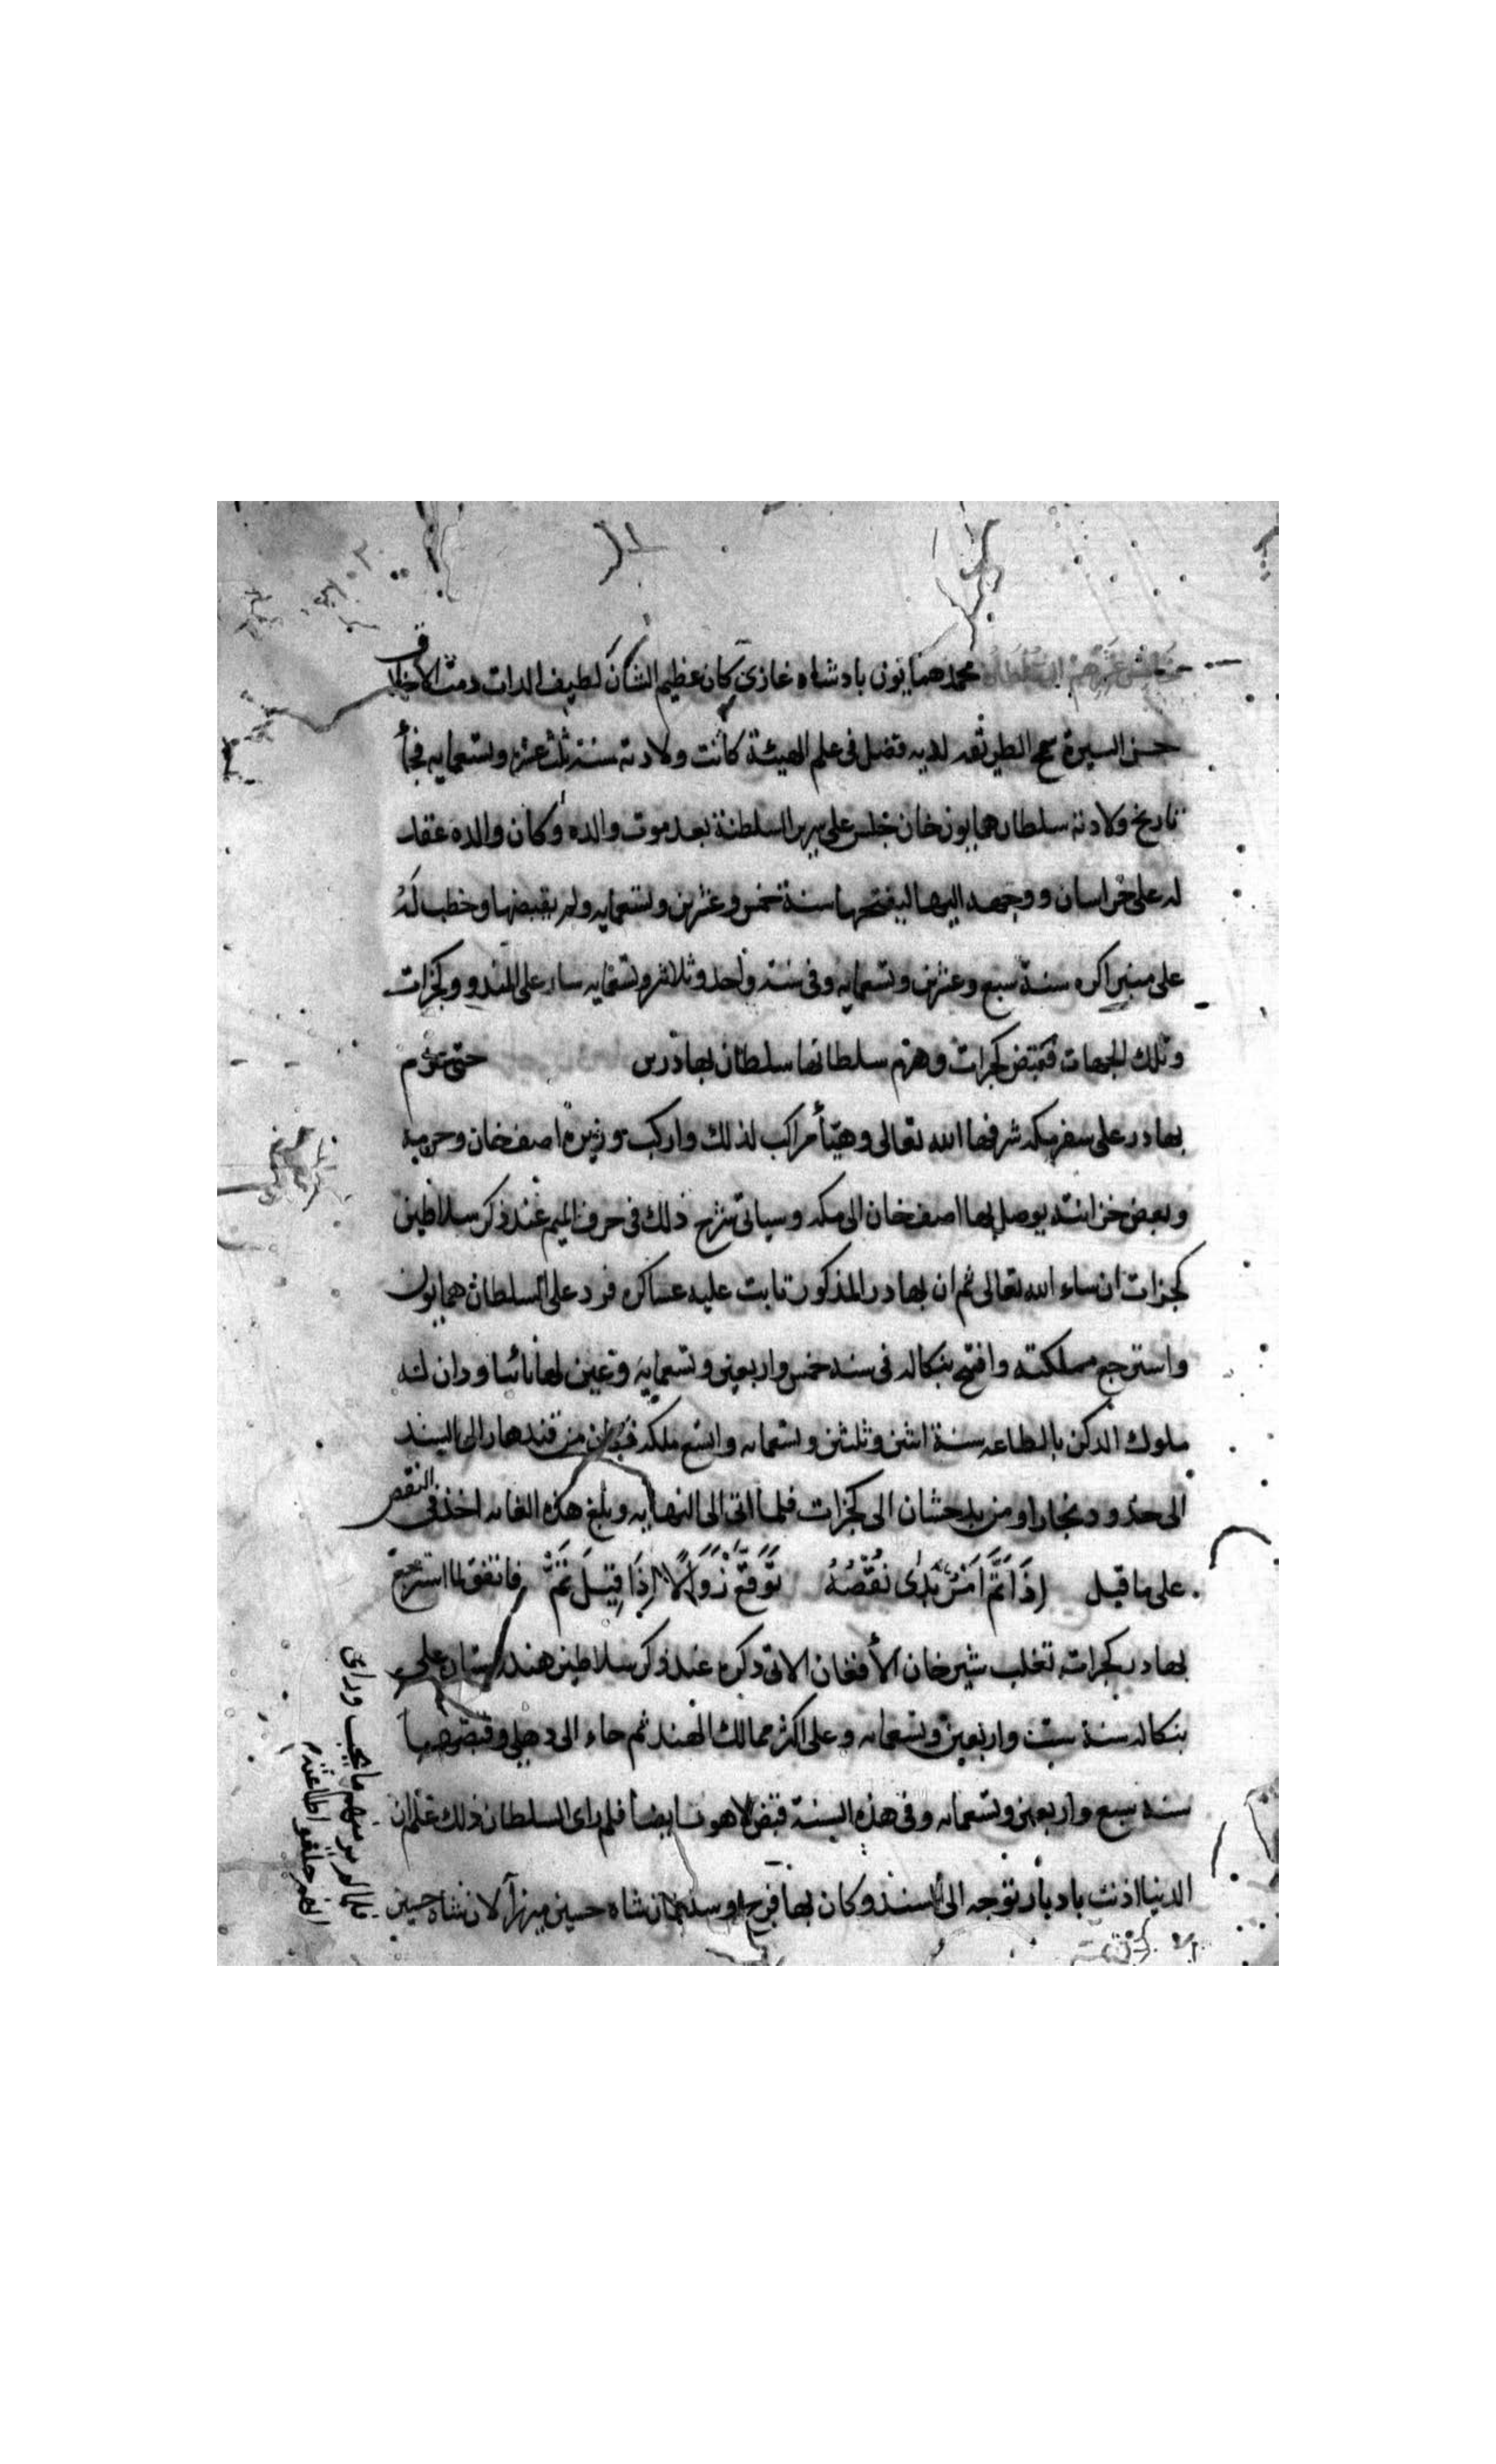 محمد همايون بادشاه غازى كان عظيم الشان لطيف الذات دمث الاخلاق
حسن السيرة سمح الطريقه لديه فضل فى علم الهيئة كانت ولادته سنة ثلث عشر وتسعمايه فجأ
تاريخ ولادته سلطان همايون خان جلس على سرير السلطنة بعد موت والده وكان والده عقد
له على خراسان ووجهه اليها ليفتحها سنة خمس وعشرين وتسعمايه ولم يقبضها وخطب له
على منبر اكره سنة سبع وعشرين وتسعمايه وفى سنة واحد وثلاثين وتسعمايه سار على المندو وكجرات
وتلك الجهات فقبض كجرات وهزم سلطانها سلطان بهادر حتى عزم
بهادر على سفر مكه شرفها الله تعالى وهيأ مراكب لذلك واركب وزيره اصف خان وحريمه
وبعض خزانته يوصل بها اصف خان الى مكه وسياتى شرح ذلك فى حرف الميم عند ذكر سلاطين
كجرات ان شاء الله تعالى ثم ان بهادر المذكور ثابت عليه عساكره فرد على السلطان همايون
واسترجع مملكته وافتح بنكاله فى سنه خمس واربعين وتسعمايه وعين لها نائبا ودان له
ملوك الدكن بالطاعه سنة اثنين وثلثين وتسعمايه واتسع ملكه فكان من قندهار الى السند
الى حدود بخارا ومن بدخشان الى كجرات فلما اتى الى النهايه وبلغ هذه الغايه اخذ فى النقص
على ما قيل اذا تم امر بدى نقصه توقع زوالا اذا قيل تم فاتفق لما استرجع
بهادر كجراته تغلب شير خان الأفغان الاتى ذكره عند ذكر سلاطين هندوستان على
بنكاله سنة ست واربعين وتسعمايه وعلى اكثر ممالك الهند ثم جاء الى دهلى وقبضها
سنه سبع واربعين وتسعمايه وفى هذه السنة قبض لاهور ايضا فلما راى السلطان ذلك علم ان
الدنيا اذنت بادبار توجه الى السند وكان بها شاه حسين ميرزا لان شاه حسين
فلما لم ير منهم ما يحب وراى
انهم خلفوا طاعته